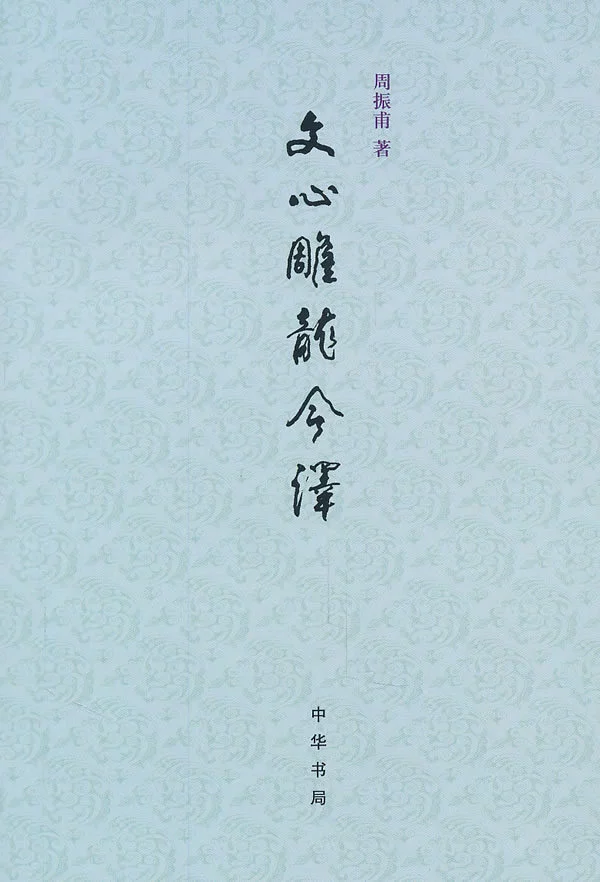 周振甫 著
文心雕龍今譯
中华书局